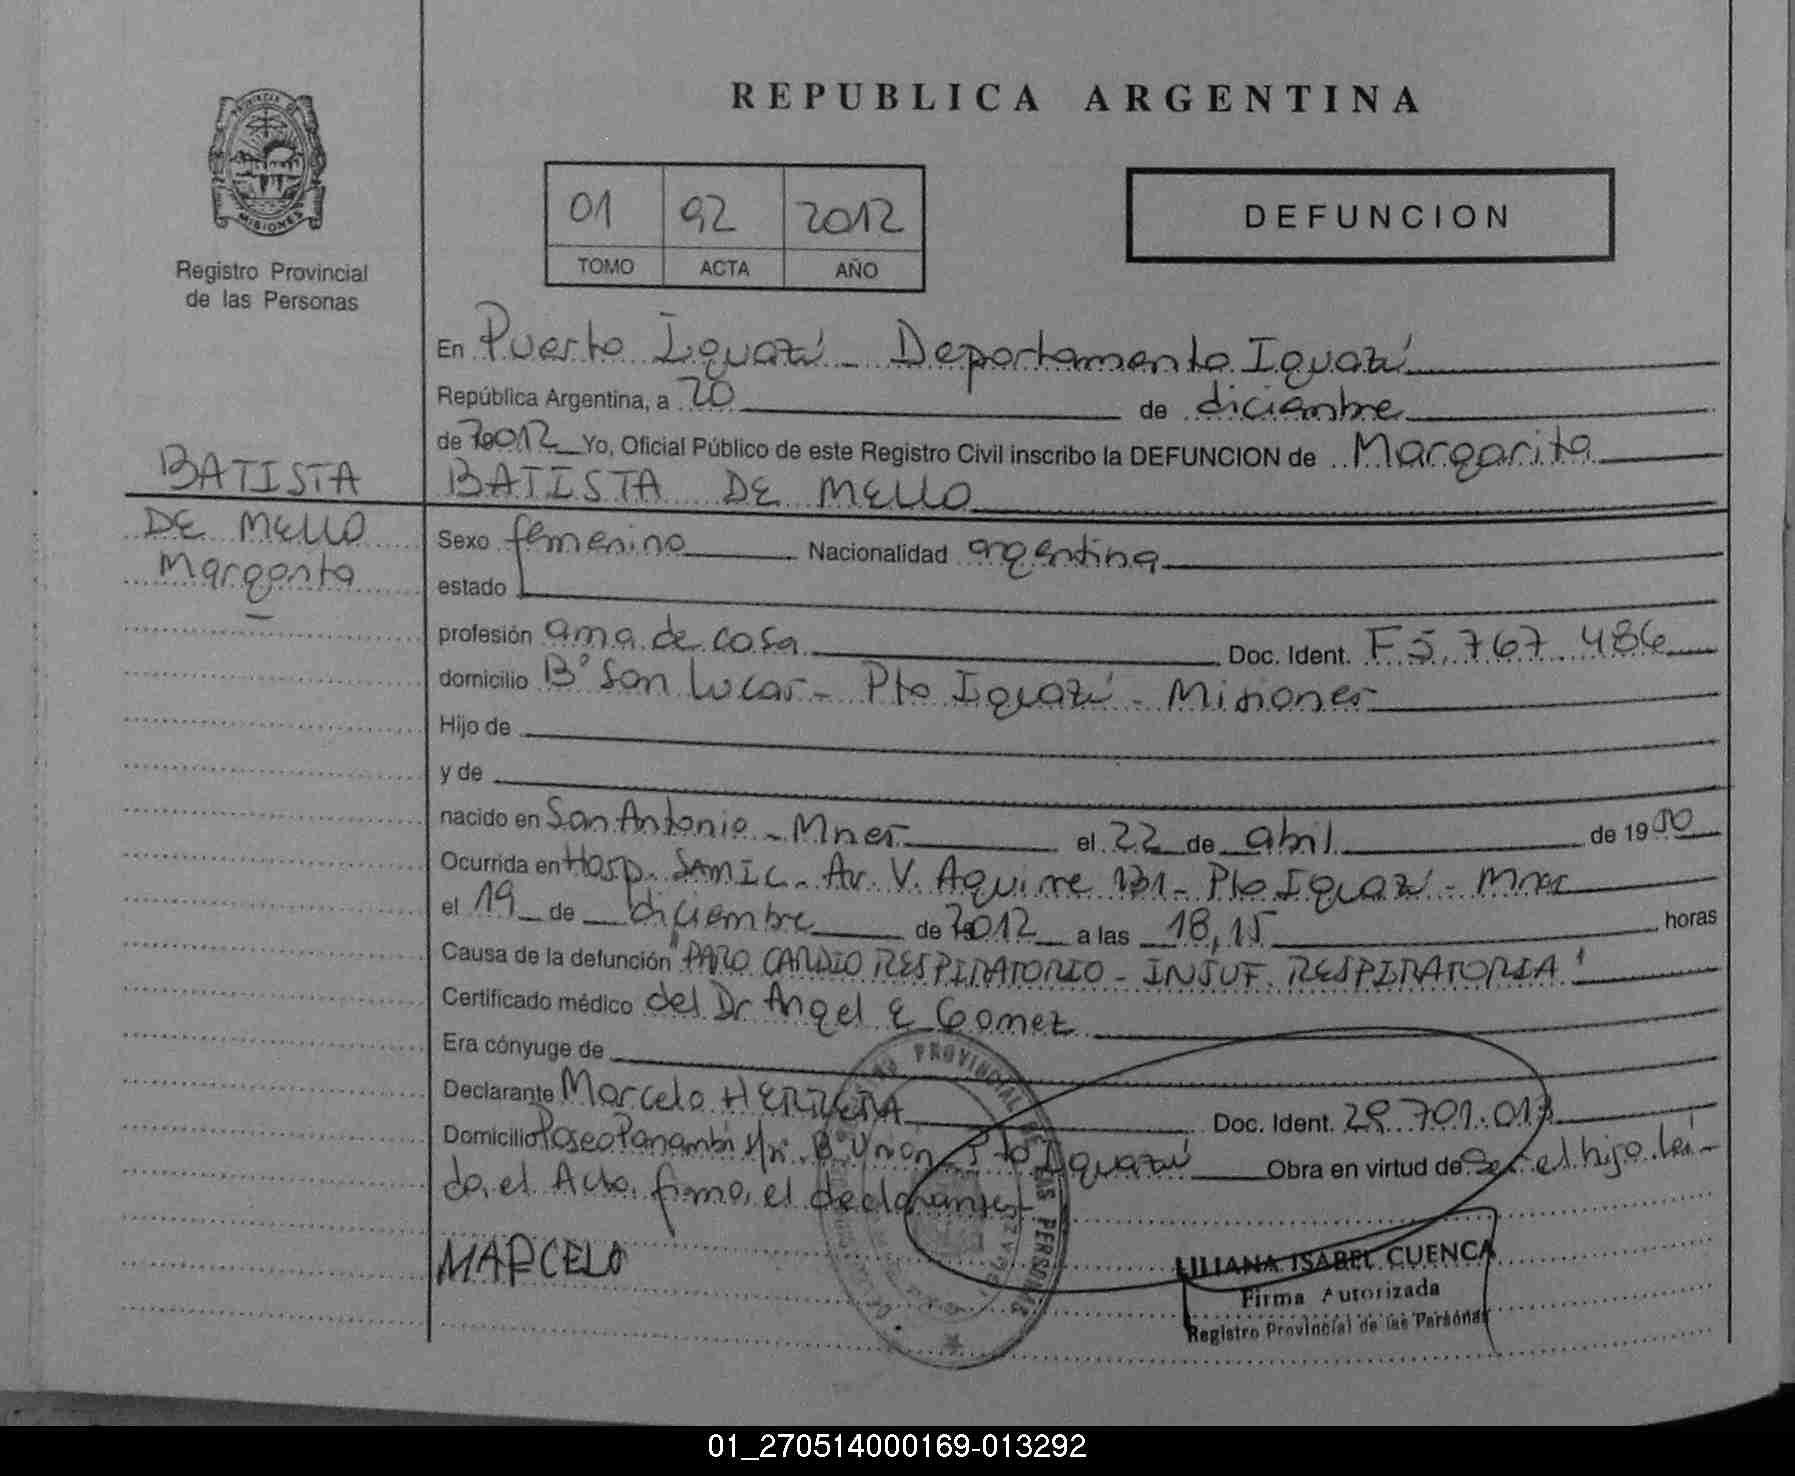 REPUBLICA ARGENTINA
PROVINCIA DE
MISIONES
Registro Provincial
de las Personas
01 92 2012
TOMO ACTA AÑO
DEFUNCION
En Puerto Iguazú - Departamento Iguazú
República Argentina, a 20 de diciembre
de 2012 Yo, Oficial Público de este Registro Civil inscribo la DEFUNCION de Margarita
BATISTA DE MELLO
BATISTA
DE MELLO
Margarita
Sexo femenino Nacionalidad argentina
estado
profesión ama de casa Doc. Ident. F 5.767.486
domicilio Bº San Lucas - Pto Iguazú - Misiones
Hijo de
y de
nacido en San Antonio - Mnes el 22 de abril de 1950
Ocurrida en Hosp. SAMIC - Av. V. Aguirre 131 - Pto Iguazú - Mnes
el 19 de diciembre de 2012 a las 18,15 horas
Causa de la defunción "PARO CARDIO RESPIRATORIO - INSUF. RESPIRATORIA"
Certificado médico del Dr Angel E Gomez
Era cónyuge de
Declarante Marcelo HERRERA Doc. Ident. 29.701.013
Domicilio Paseo Panambi s/n Bº Union Pto Iguazú Obra en virtud de Ser el hijo. Leí-
da el Acta, firma el declarante
MARCELO
PROVINCIAL DE LAS PERSONAS
LILIANA ISABEL CUENCA
Firma Autorizada
Registro Provincial de las Personas
01_270514000169-013292